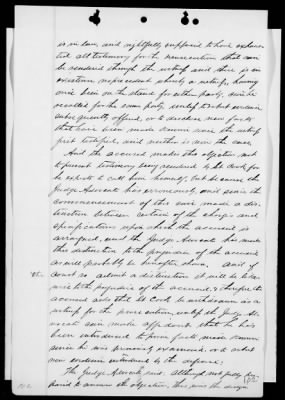 is in law, and rightfully supposed to have exhaus-
ted all testimony for the prosecution that can
be rendered through the witness and there is in
existence no precedent whereby a witness, having
once been on the stand for either party, can be
recalled for the same party, unless to rebut evidence
subsequently offered, or to disclose new facts
that have been made known since the witness
first testified, and neither is now the case.
And the accused makes this objection not
to prevent testimony being rendered by Dr. Cook, for
he expects to call him himself, but because the
Judge Advocate has erroneously, and since the
commencement of this case made a dis-
tinction between certain of the charges and
specifications upon which the accused is
arraigned, and the Judge Advocate has made
this distinction to the prejudice of the accused
as will probably be hereafter shown. Said
court so admit a distinction it will be
to the prejudice of the accused, & therefore the
accused asks that Dr. Cook be withdrawn as a
witness for the prosecution, unless the Judge Ad-
vocate can make affidavit that he has
been introduced to prove facts made known
since he was previously examined, or to rebut
new evidence introduced by the defense.
The Judge Advocate said: Although not fully pre-
pared to answer the objection,